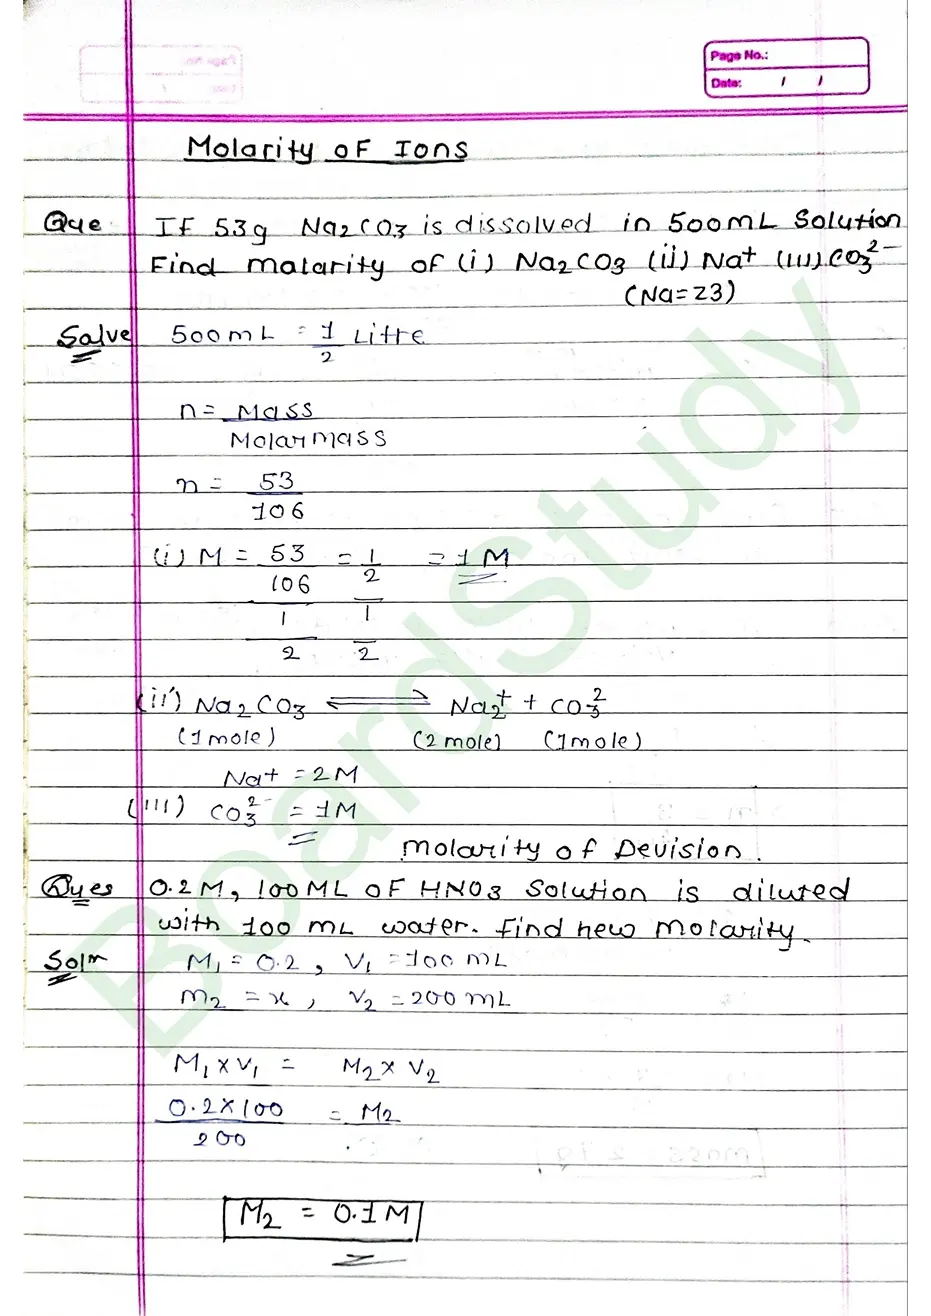 Page No.:
Date: / /
Molarity oF Ions
Que If 53g Na₂CO₃ is dissolved in 500mL Solution
Find malarity of (i) Na₂CO₃ (ii) Na⁺ (III) CO₃²⁻
(Na=23)
Salve 500mL = 1/2 Litre
n = Mass/Molar mass
n = 53/106
(i) M = 53/106 / 1/2 = 1/2 / 1/2 = 1M
(ii) Na₂CO₃ ⇌ Na₂⁺ + CO₃²
(1mole) (2mole) (1mole)
Na⁺ = 2M
(III) CO₃²⁻ = 1M
Molarity of Devision.
Ques 0.2M, 100ML OF HNO₃ Solution is diluted
with 100 mL water. find new Molarity.
Solⁿ M₁ = 0.2, V₁ = 100 mL
M₂ = x, V₂ = 200 mL
M₁ x V₁ = M₂ x V₂
0.2 x 100/200 = M₂
M₂ = 0.1M
BoardStudy